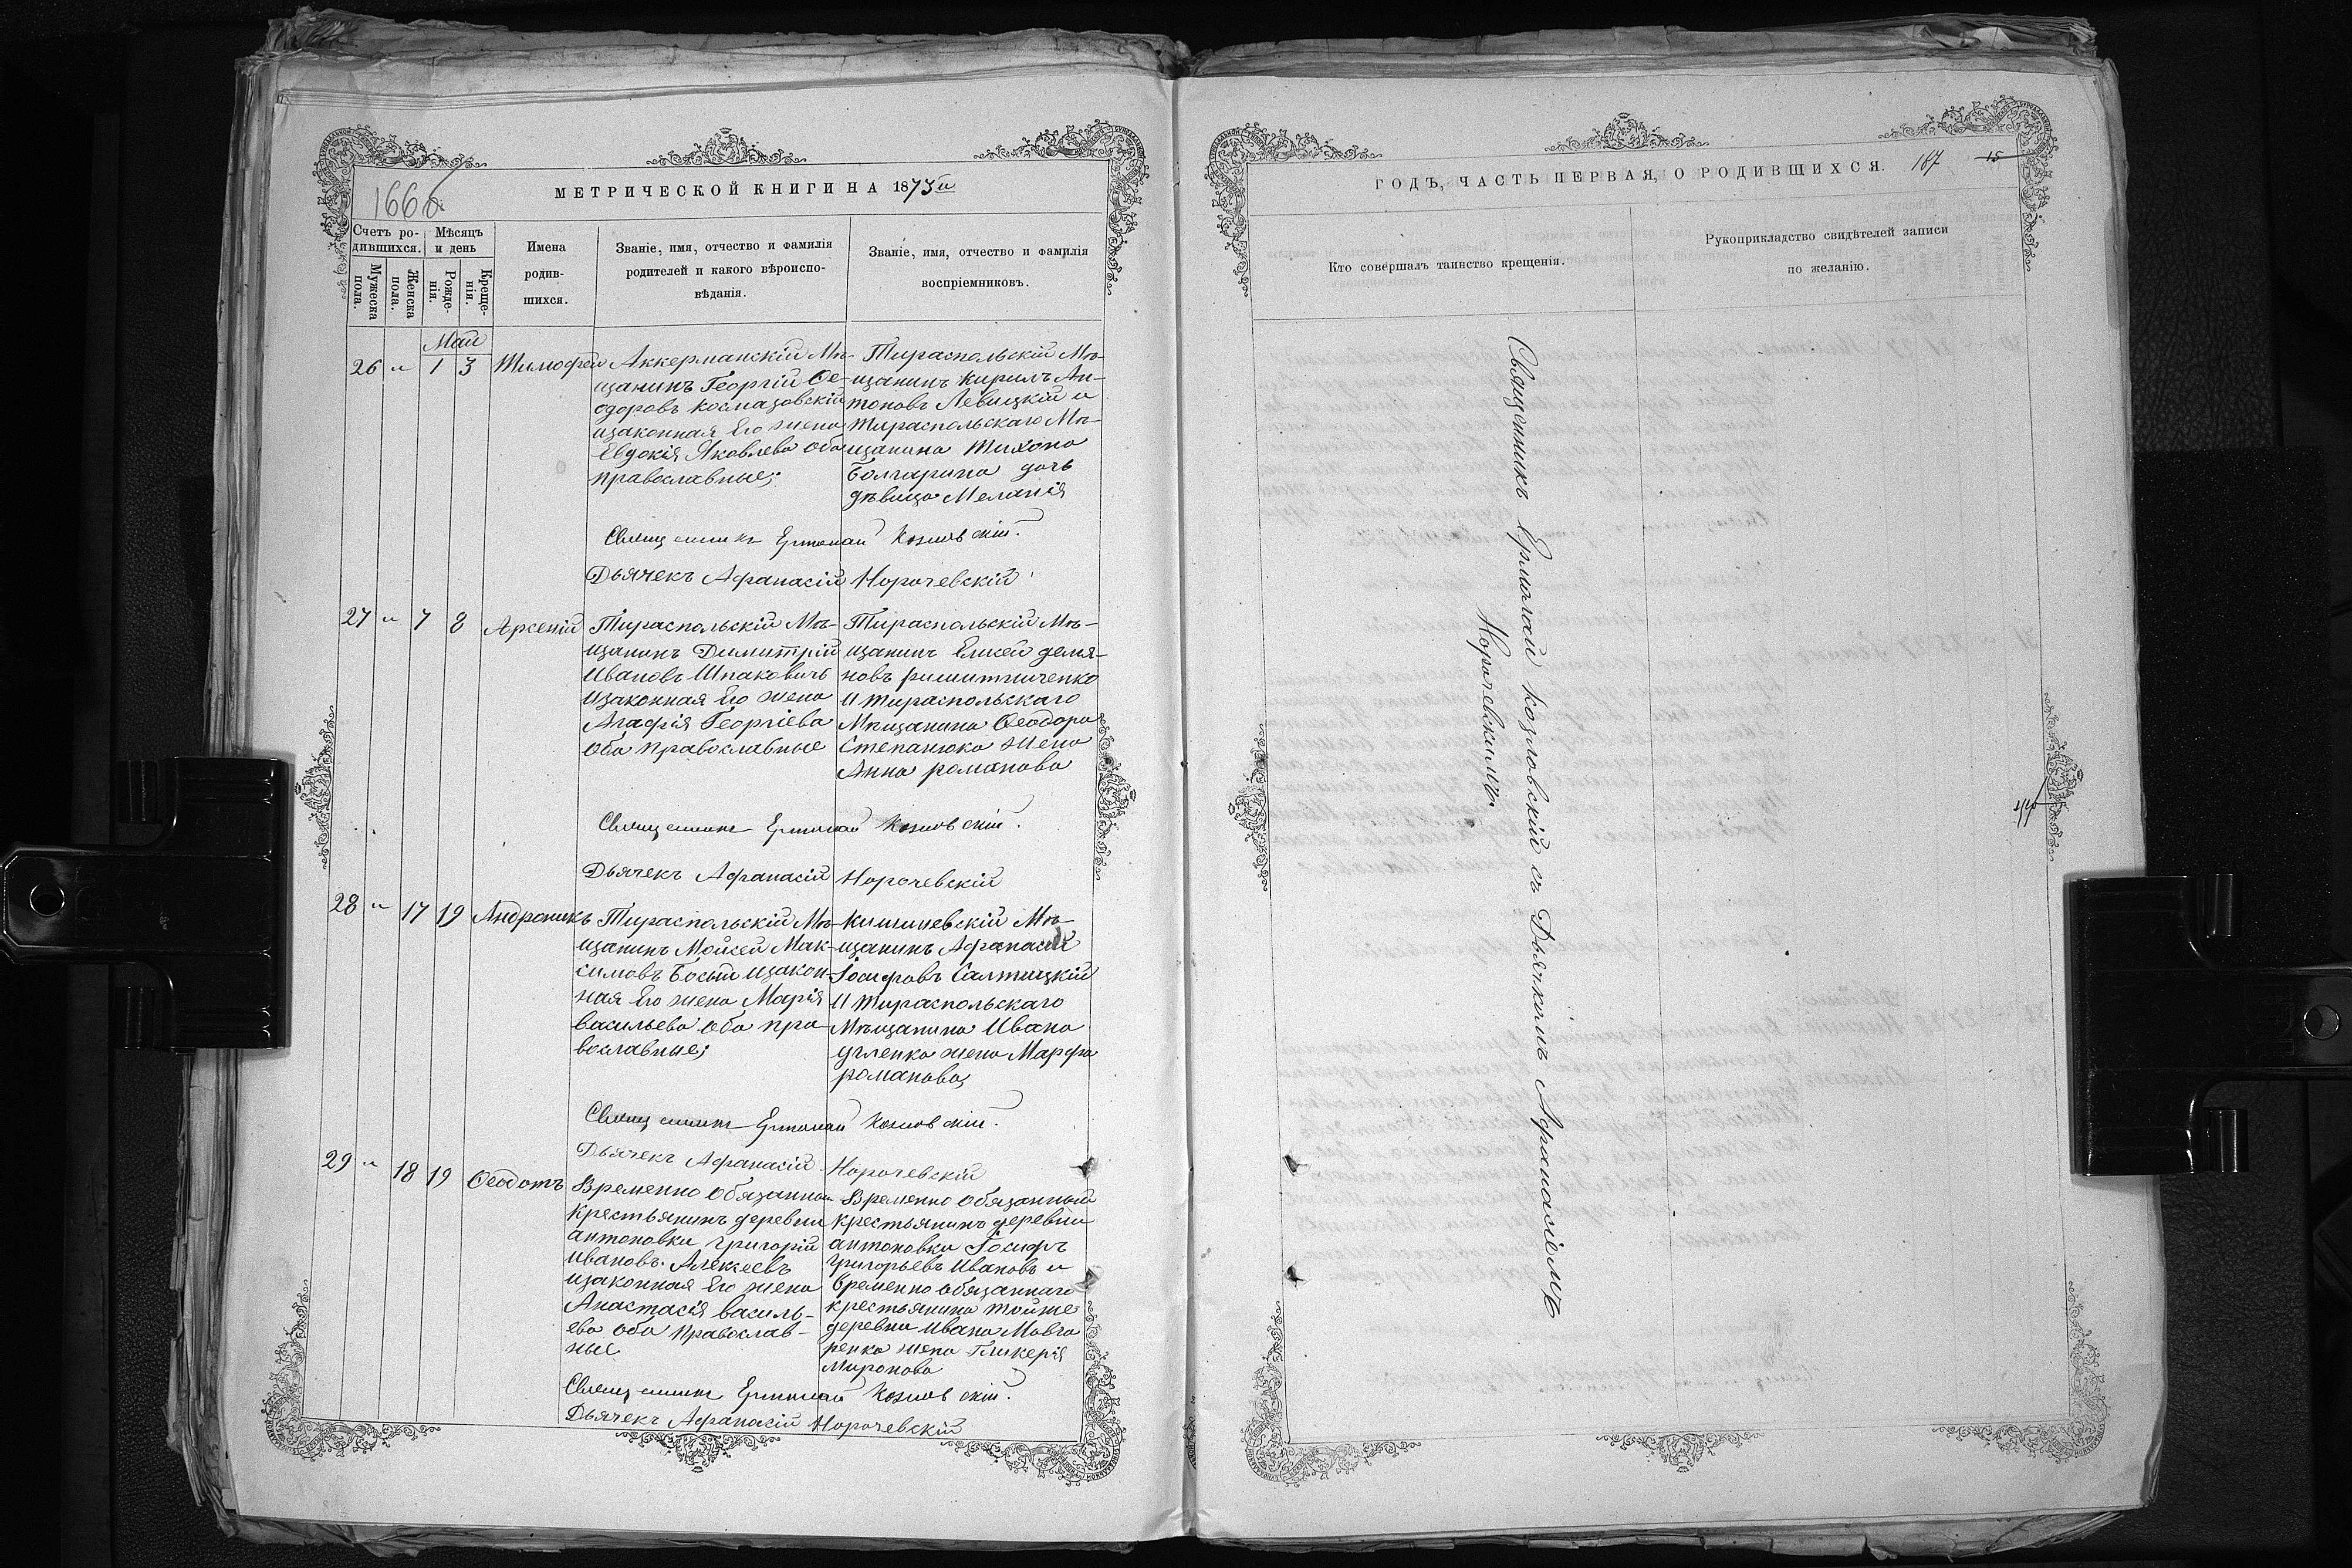 166 об
МЕТРИЧЕСКОЙ КНИГИ НА 1873й
Счетъ ро-
дившихся.
Мѣсяцъ
и день
Мужеска
пола.
Женска
пола.
Рожде-
нія.
Креще-
нія.
Имена
родив-
шихся.
Званіе, имя, отчество и фамилія
родителей и какого вѣроиспо-
вѣданія.
Званіе, имя, отчество и фамилія
воспріемниковъ.
Май
26 „ 1 3 Тимофей
Аккерманскій Мѣ-
щанинъ Георгій Ѳе-
одоровъ Космазовскій
изаконная Его жена
Евдокія Яковлева оба
православные;
Тираспольскій Мѣ-
щанинъ Кирилъ Ан-
тоновъ Левицкій и
тираспольскаго Мѣ-
щанина Тихона
Болгарина дочь
дѣвица Меланія
Священникъ Ермолай Козловскій.
Дьячекъ Афанасій Норочевскій
27 „ 7 8 Арсеній
Тираспольскій Мѣ-
щанинъ Димитрій
Ивановъ Шпаковичъ
изаконная Его жена
Агафія Георгіева
оба православные
Тираспольскій Мѣ-
щанинъ Елисей демя-
новъ
И тираспольскаго
Мѣщанина Ѳеодора
Степанюка жена
Анна романова
Священникъ Ермолай Козловскій.
Дьячекъ Афанасій Норочевскій
28 „ 17 19 Андроникъ
Тираспольскій Мѣ-
щанинъ Мойсей Мак-
симовъ Босый изакон-
ная Его жена Марія
васильева Оба пра-
вославные;
Кишиневскій Мѣ-
щанинъ Афанасій
Іосифовъ Салтицкій
И тираспольскаго
Мѣщанина Ивана
жена Марфа
романова,
Священникъ Ермолай Козловскій.
Дьячекъ Афанасій Норочевскій
29 „ 18 19 Ѳеодотъ
Временно Обязанный
крестьянинъ деревни
антоновки григорій
ивановъ Алексеевъ
изаконная Его жена
Анастасія василь-
ева оба православ-
ные
Временно обязанный
крестьянинъ деревни
антоновки Іосифъ
григорьевъ Ивановъ и
временно обязаннаго
крестьянина тойже
деревни Ивана Мовча
ренка жена Гликерія
Миронова
Священникъ Ермолай Козловскій.
Дьячекъ Афанасій Норочевскій
ГОДЪ, ЧАСТЬ ПЕРВАЯ, О РОДИВШИХСЯ. 167 15
Кто совершалъ таинство крещенія.
Рукоприкладство свидѣтелей записи
по желанію.
Священникъ Ермолай Козловскій съ Дьячкомъ Афанасіемъ
Норочевскимъ.